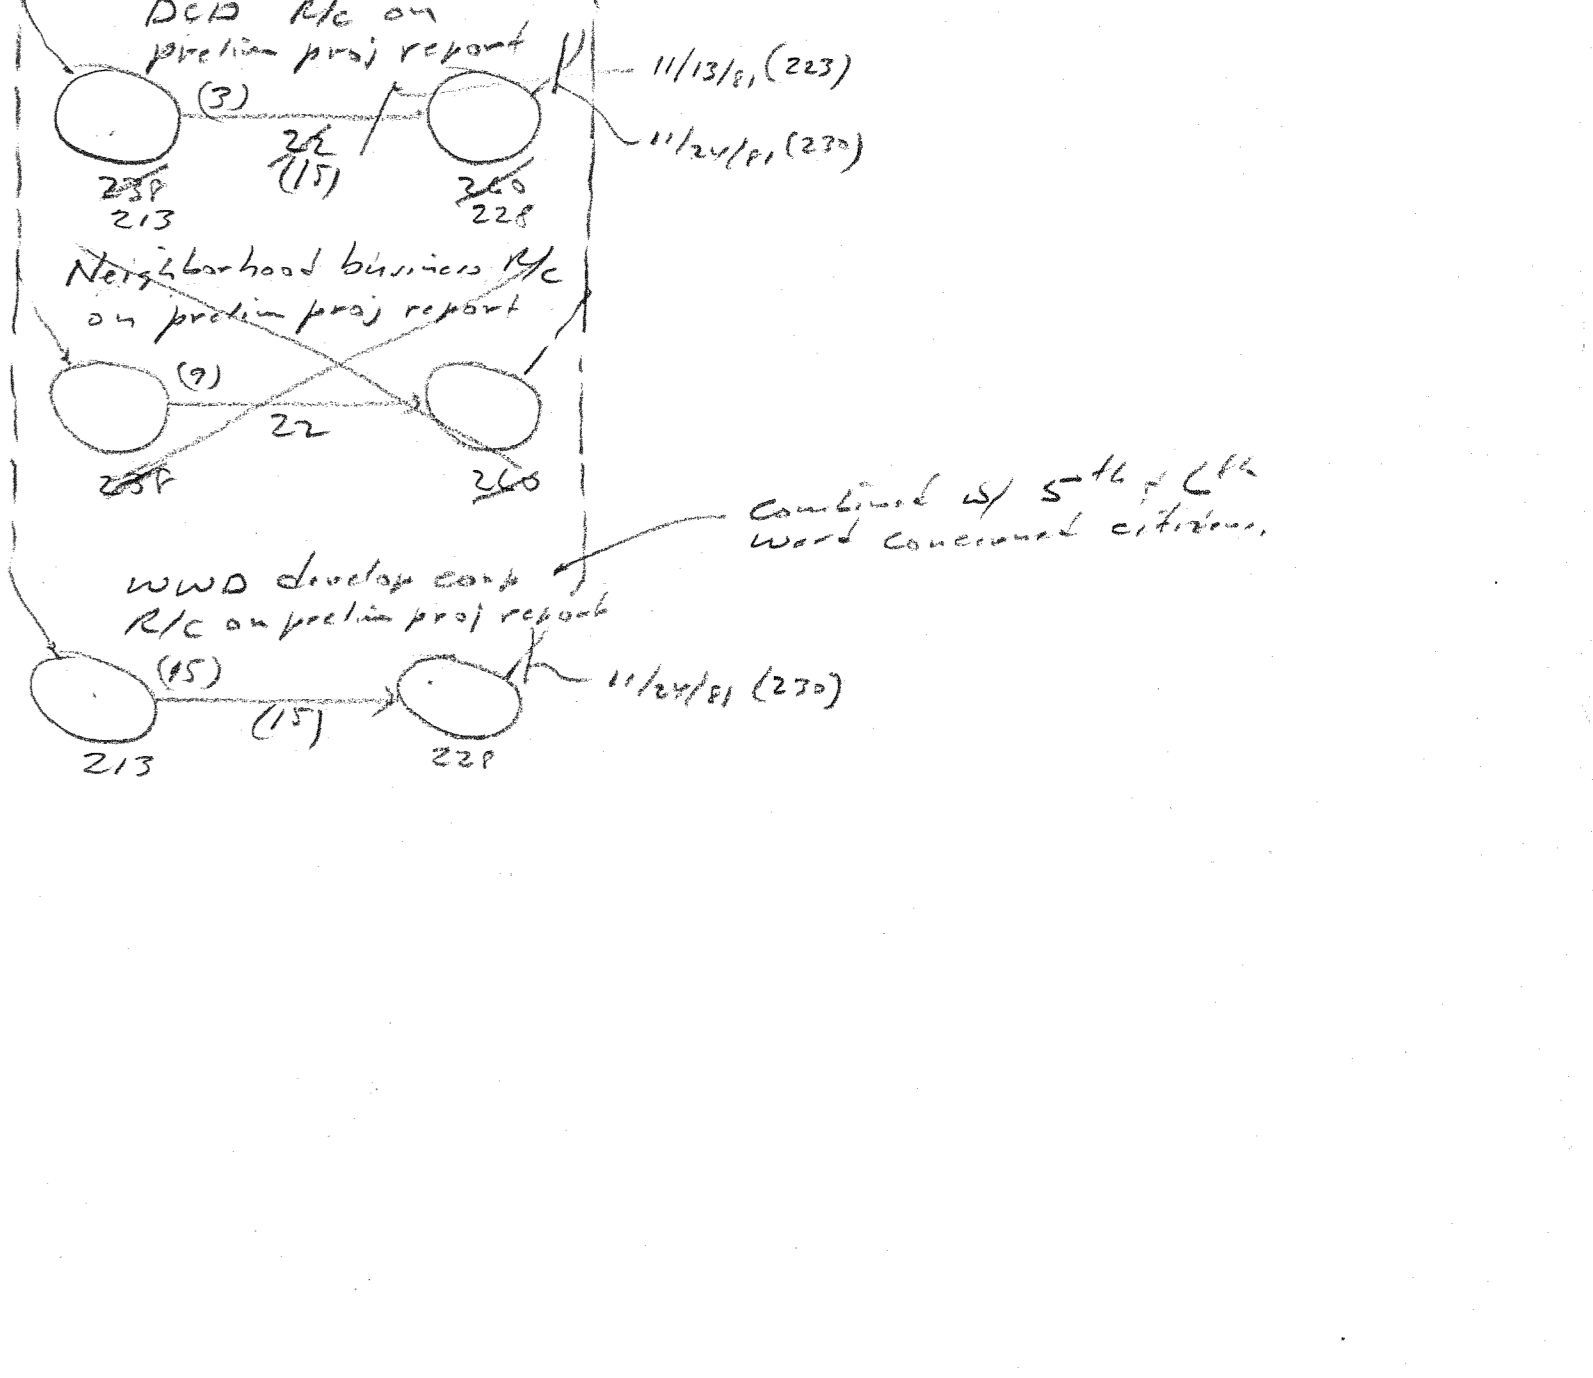 DCD R/C on
prelim proj report
11/13/81 (223)
(3)
22
11/24/81 (230)
(15)
238
260
213
228
Neighborhood business R/C
on prelim proj report
(9)
22
238
260
Combined w/ 5th & 6th
Ward concerned citizens.
WWD develop corp
R/C on prelim proj report
(15)
11/24/81 (230)
(15)
213
228